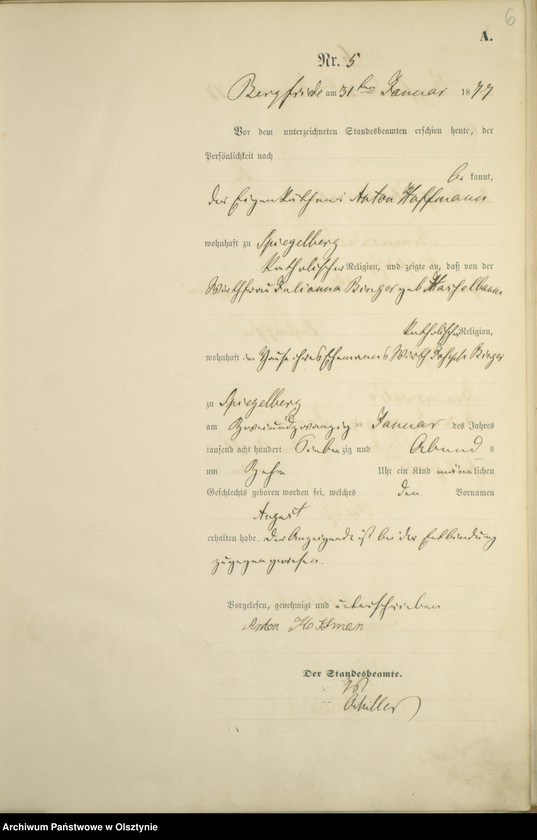 6
A.
Nr. 5
Bergfriede am 31ten Januar 1877
Vor dem unterzeichneten Standesbeamten erschien heute, der
Persönlichkeit nach
be kannt,
der Eigenkäthner Anton Hoffmann
wohnhaft zu Spiegelberg
katholischer Religion, und zeigte an, daß von der
Wirthfrau Julianna geb
katholischer Religion,
wohnhaft im Hause ihres Ehemanns Wirth Joseph
zu Spiegelberg
am zweiundzwanzig ten Januar des Jahres
tausend acht hundert siebenzig und Abends
um Zehn Uhr ein Kind männlichen
Geschlechts geboren worden sei, welches den Vornamen
August
erhalten habe. Der Anzeigende ist bei der Entbindung
zugegen gewesen.
Vorgelesen, genehmigt und unterschrieben
Anton
Der Standesbeamte.
Schiller
Archiwum Państwowe w Olsztynie